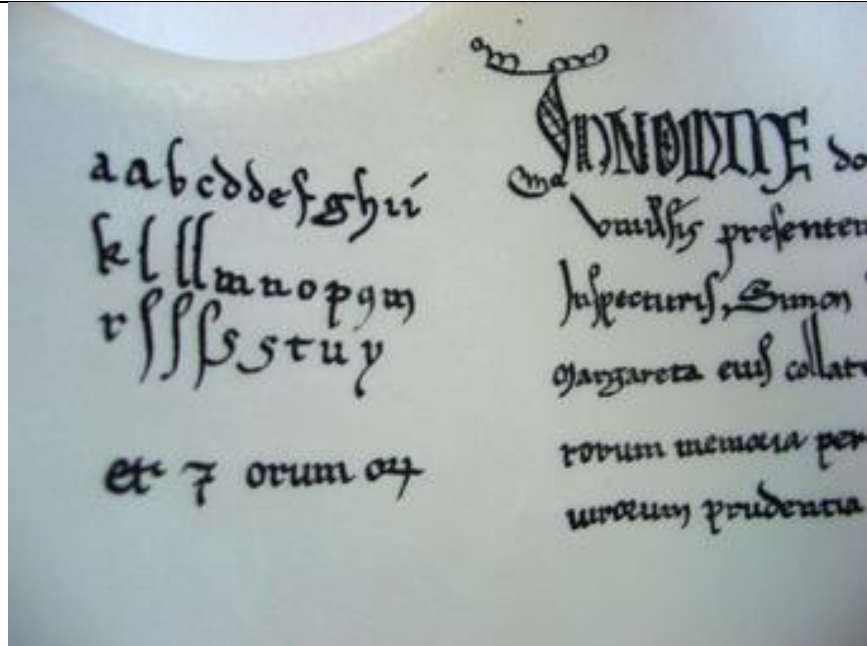 a a b c d d e f g h i í
k l l l m n o p q m
r ſ ſ ſ s s t u y
et 7 orum
IN NOMINE do
presenten
Inspecturis, Simon
Margareta eius collate
rorum memoria per
uirorum prudentia